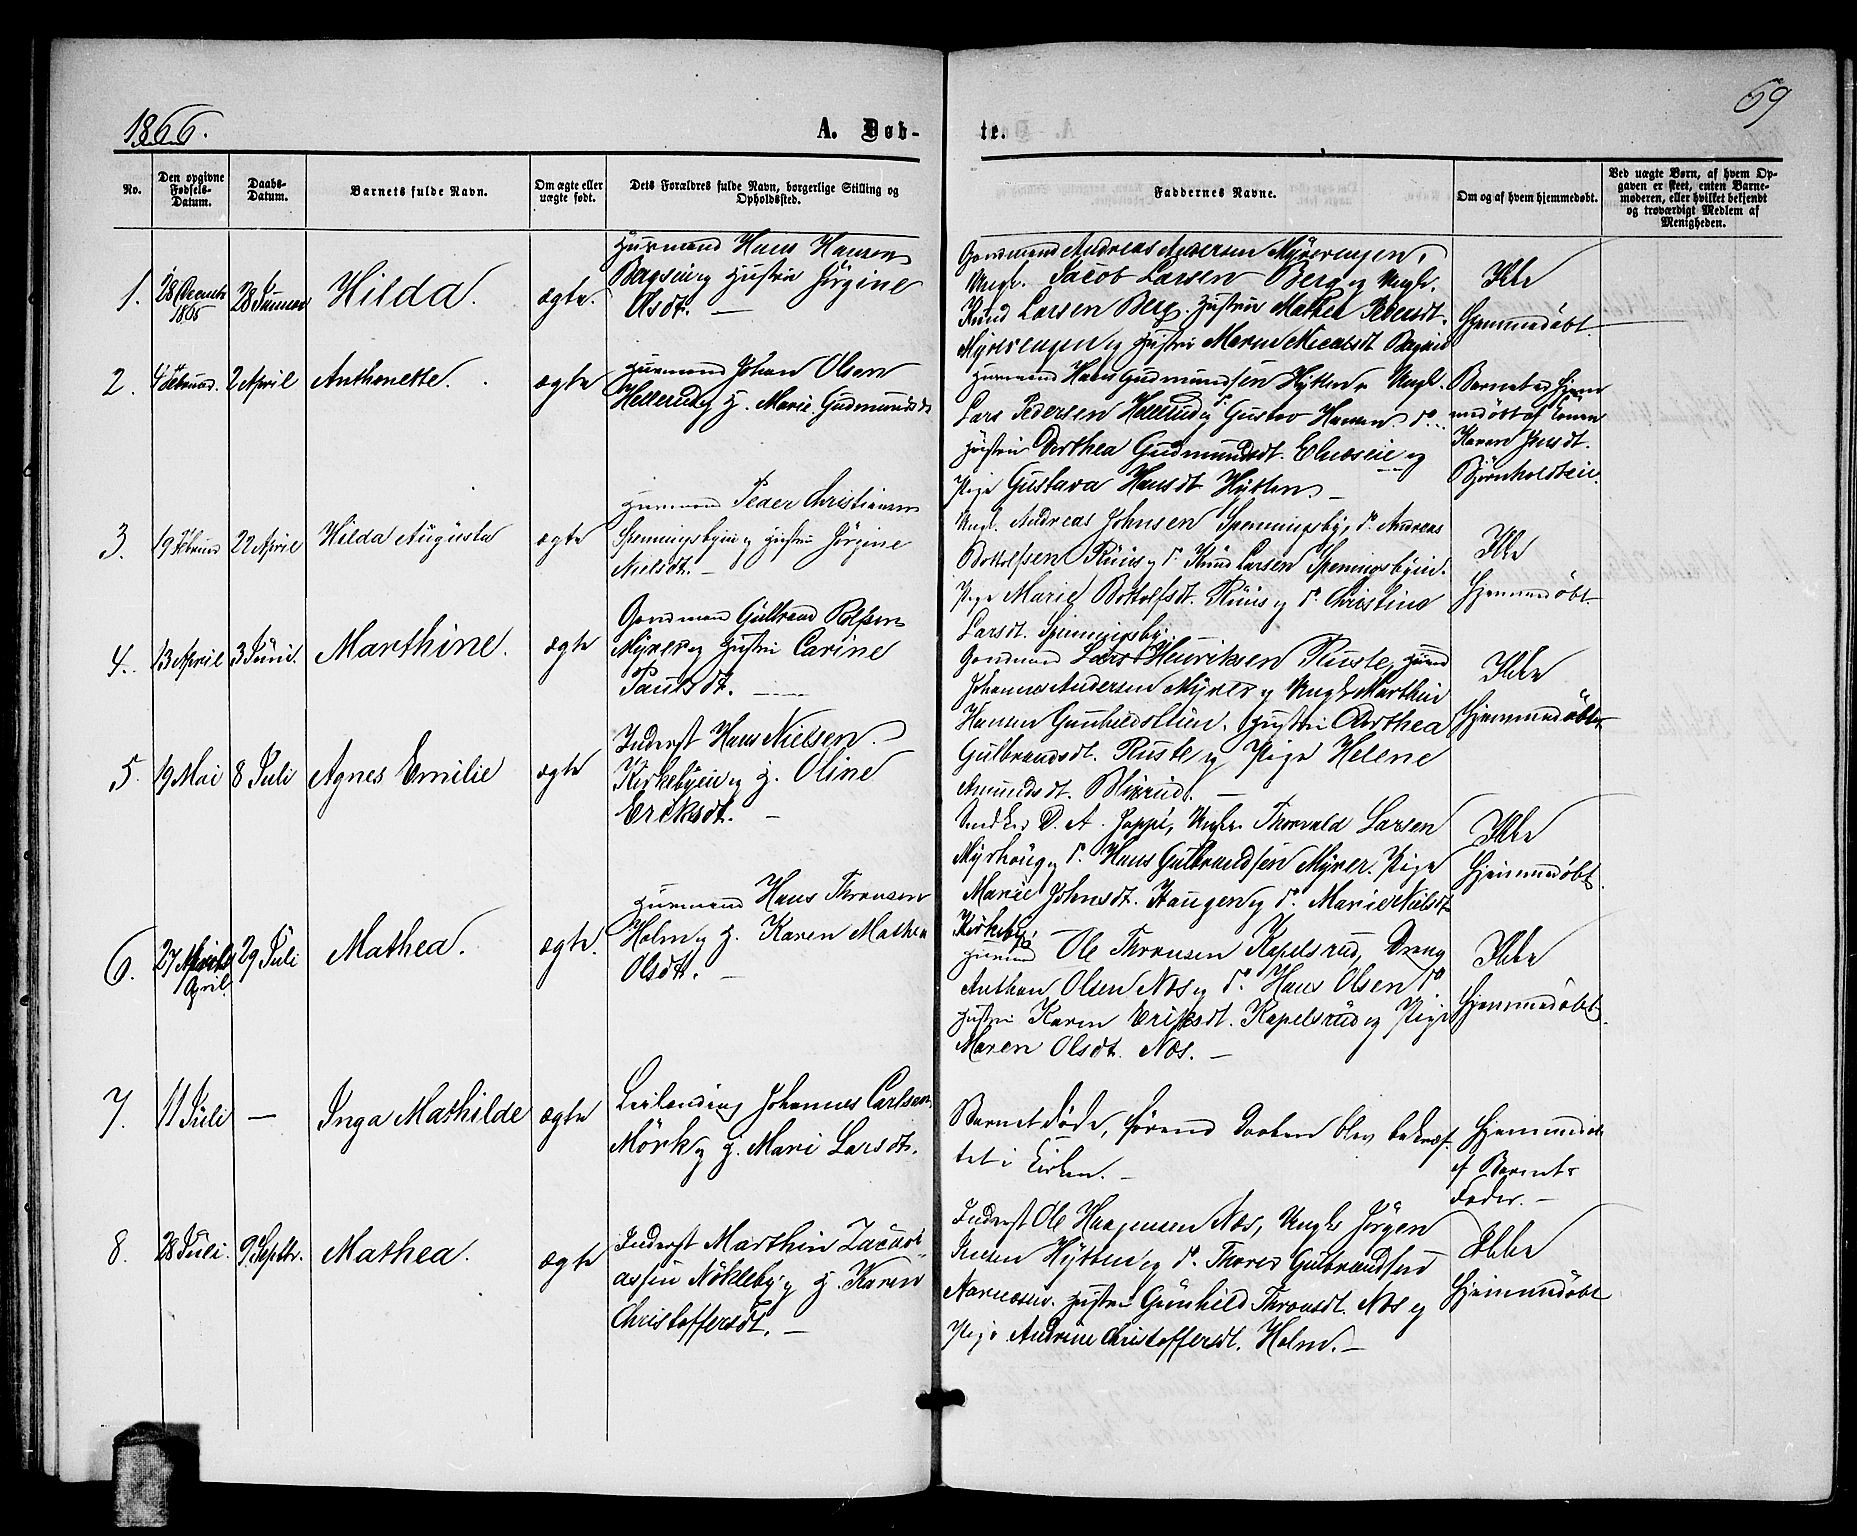 1866.
A. Døb-
te.
69
No.
Den opgivne Fødsels-Datum.
Daabs-Datum.
Barnets fulde Navn.
Om ægte eller uægte født.
Dets Forældres fulde Navn, borgerlige Stilling og Opholdssted.
Faddernes Navne.
Om og af hvem hjemmedøbt.
Ved uægte Børn, af hvem Op-
gaven er skeet, enten Barne-
moderen, eller hvilket bekjendt
og troværdigt Medlem af
Menigheden.
1.
28
1865
28 Januar
Hilda.
ægte.
Huusmand Hans Hansen
og Hustru Jörgine
Olsdt.
Gaardmand Andreas Andersen Myrerengen,
Ungk. Jacob Larsen Berg og Ungk.
Knud Larsen Berg. Hustru Mathea Pedersdt.
Myrerengen og Hustru Maren
Ikke
Hjemmedøbt
2.
4 Februar.
2 April
Anthonette.
ægte
Huusmand Johan Olsen
Hellerud og H. Marie Gudmundsdt.
Huusmand Hans Gudmundsen Hytten, Ungk.
Lars Pedersen Hellerud og Gustav Hansen do
Hustru Dorthea Gudmundsdt. og
Pige Gustava Hansdt. Hytten. —
Barnet er hjem-
medøbt af Konen
Karen Jensdt.
Bjørnholdteie.
3.
19 Februar
22 April
Hilda Augusta
ægte
Huusmand Peder Christiansen
Spenningsbyeie og Hustru Jörgine
Nielsdt. —
Ungk. Andreas Johnsen Spenningsby, do Andreas
Bottolfsen Ruus og do Knud Larsen Spenningsbyeie.
Pige Marie Bottolfsdt. Ruus og do Christine
Larsdt. Spenningsby.
Ikke
Hjemmedøbt
4.
13 April
3 Juni.
Marthine.
ægte
Gaardmand Gulbrand Rolfsen
Myrer og Hustru Carine
Paulsdt. —
Gaardmand Lars Henriksen Ruste,
Johannes Andersen Myrer og Ungk. Marthin
Hansen Gunhildsteien. Hustru Dorthea
Gulbrandsdt. Ruste og Pige Helene
Amundsdt. Blixrud. —
Ikke
Hjemmedøbt
5.
19 Mai
8 Juli
Agnes Emilie
ægte
Inderst Hans Nielsen
Kirkebyeie og H. Oline
Eriksdt. —
D. A. Joppe, Ungk. Thorvald Larsen
Myrhoug og do Hans Gulbrandsen Myrer. Pige
Marie Johnsdt. Haugen og do Marie Nielsdt.
Kirkeby.
Ikke
Hjemmedøbt.
6.
27
April.
29 Juli
Mathea.
ægte.
Huusmand Hans Thronsen
Holm og H. Karen Mathea
Olsdt. —
Huusmand Ole Thronsen Kapelsrud, Dreng
Anthon Olsen Næs og do Hans Olsen do
Hustru Karen Eriksdt. Kapelsrud og Pige
Maren Olsdt. Næs. —
Ikke
Hjemmedøbt.
7.
11 Juli
—
Inga Mathilde
ægte
Leilending Johannes Carlsen
Mörk og H. Mari Larsdt.
Barnet døde, førend Daaben blev bekræf-
tet i Kirken. —
Hjemmedøbt
af Barnets
Fader. —
8.
28 Juli.
9 Septbr.
Mathea.
ægte
Inderst Marthin Zacari-
assen Nökleby og H. Karen
Christoffersdt. —
Inderst Ole Haagensen Næs, Ungk. Jörgen
Hytten og do Thorer Gulbrandsen
Hustru Gunhild Thronsdt. Næs og
Pige Andrine Christoffersdt. Holm. —
Ikke
Hjemmedøbt